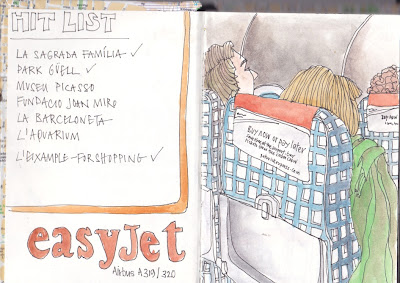 HIT LIST
LA SAGRADA FAMÍLIA ✓
PARK GÜELL ✓
MUSEU PICASSO
FUNDACIO JOAN MIRO
LA BARCELONETA
L'AQUARIUM
L'EIXAMPLE-FOR SHOPPING ✓
easyJet
Airbus A319/320
Buy now or pay later
Buy now